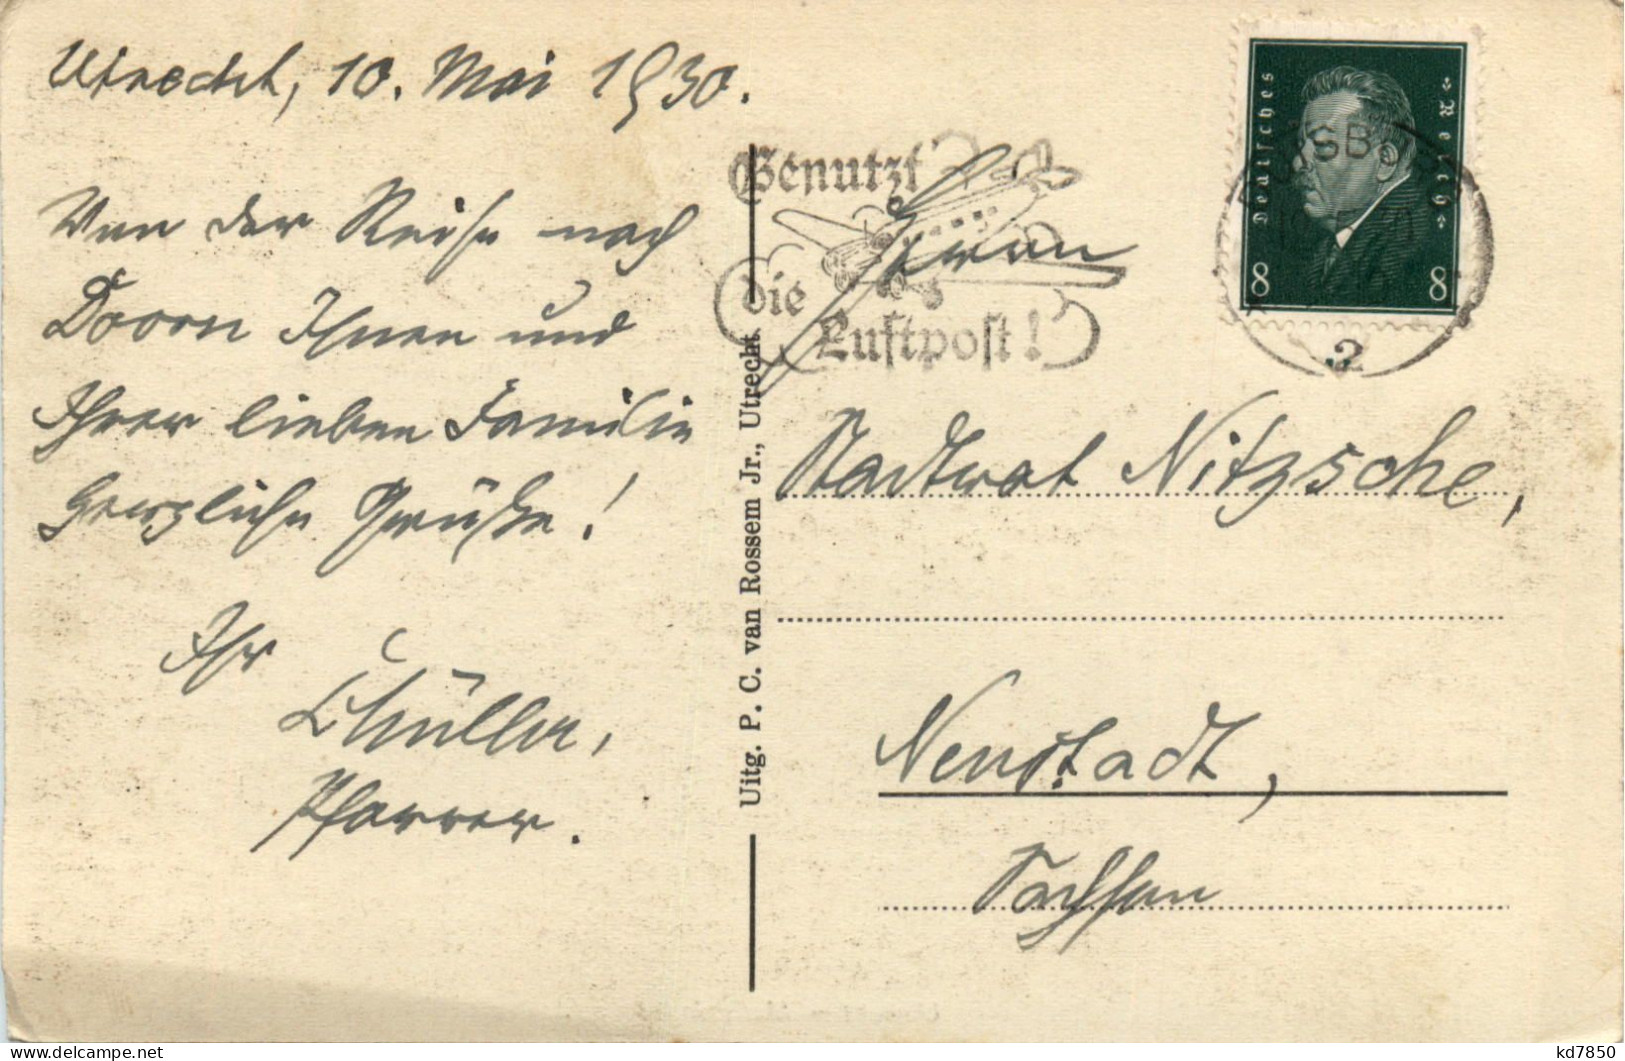 Utrecht, 10. Mai 1930.
Von der Reise nach
Doorn Ihnen und
Ihrer lieben Familie
herzliche Grüße!
Ihr
Pfarrer.
Uitg. P. C. van Rossem Jr., Utrecht.
Benutzt
die
Luftpost!
Herrn
Stadtrat Nitzsche,
Neustadt,
Sachsen
Deutsches Reich
8 8
2
kd7850